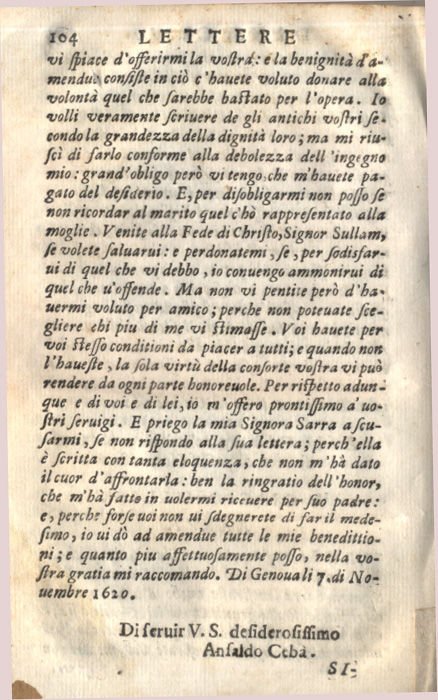 104 LETTERE
vi ſpiace d'offerirmi la voſtra: e la benignità d'a-
mendue conſiſte in ciò c'hauete voluto donare alla
volontà quel che ſarebbe baſtato per l'opera. Io
volli veramente ſcriuere de gli antichi voſtri ſe-
condo la grandezza della dignità loro; ma mi riu-
ſcì di farlo conforme alla debolezza dell'ingegno
mio: grand'obligo però vi tengo, che m'hauete pa-
gato del deſiderio. E, per diſobligarmi non poſſo ſe
non ricordar al marito quel c'hò rappreſentato alla
moglie. Venite alla Fede di Chriſto, Signor Sullam,
ſe volete ſaluarui: e perdonatemi, ſe, per ſodisfar-
ui di quel che vi debbo, io conuengo ammonirui di
quel che u'offende. Ma non vi pentite però d'ha-
uermi voluto per amico; perche non poteuate ſce-
gliere chi piu di me vi ſtimaſſe. Voi hauete per
voi ſteſſo conditioni da piacer a tutti; e quando non
l'haueſte, la ſola virtù della conſorte voſtra vi può
rendere da ogni parte honoreuole. Per riſpetto adun-
que e di voi e di lei, io m'offero prontiſſimo a' uo-
ſtri ſeruigi. E priego la mia Signora Sarra a ſcu-
ſarmi, ſe non riſpondo alla ſua lettera; perch'ella
è ſcritta con tanta eloquenza, che non m'hà dato
il cuor d'affrontarla: ben la ringratio dell'honor,
che m'hà fatto in uolermi riceuere per ſuo padre:
e, perche forſe uoi non ui ſdegnerete di far il mede-
ſimo, io ui dò ad amendue tutte le mie benedittio-
ni; e quanto piu affettuoſamente poſſo, nella vo-
ſtra gratia mi raccomando. Di Genoua li 7. di No-
uembre 1620.
Di ſeruir V. S. deſideroſiſſimo
Anſaldo Cebà.
SI-